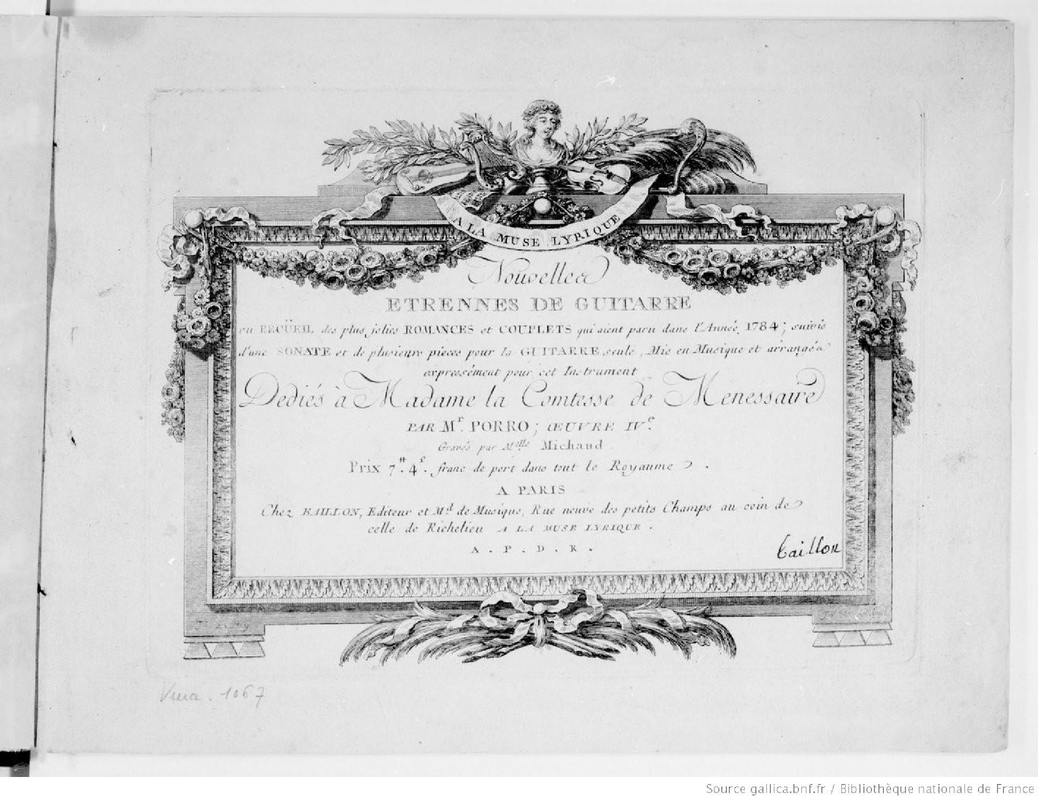 A LA MUSE LYRIQUE
Nouvelles
ETRENNES DE GUITARRE
ou RECÜEIL des plus jolies ROMANCES et COUPLETS qui aient paru dans l'Année 1784; suivis
d'une SONATE et de plusieurs pieces pour la GUITARRE seule, Mis en Musique et arrangés
expressément pour cet Instrument
Dediés à Madame la Comtesse de Menessaire
PAR Mr. PORRO; ŒUVRE IVe.
Gravés par Melle Michaud.
Prix 7tt. 4s. franc de port dans tout le Royaume.
A PARIS
Chez BAILLON, Editeur et Md. de Musique, Rue neuve des petits Champs au coin de
celle de Richelieu A LA MUSE LYRIQUE.
A.P.D.R.
Baillon
Vma. 1067
Source gallica.bnf.fr / Bibliothèque nationale de France